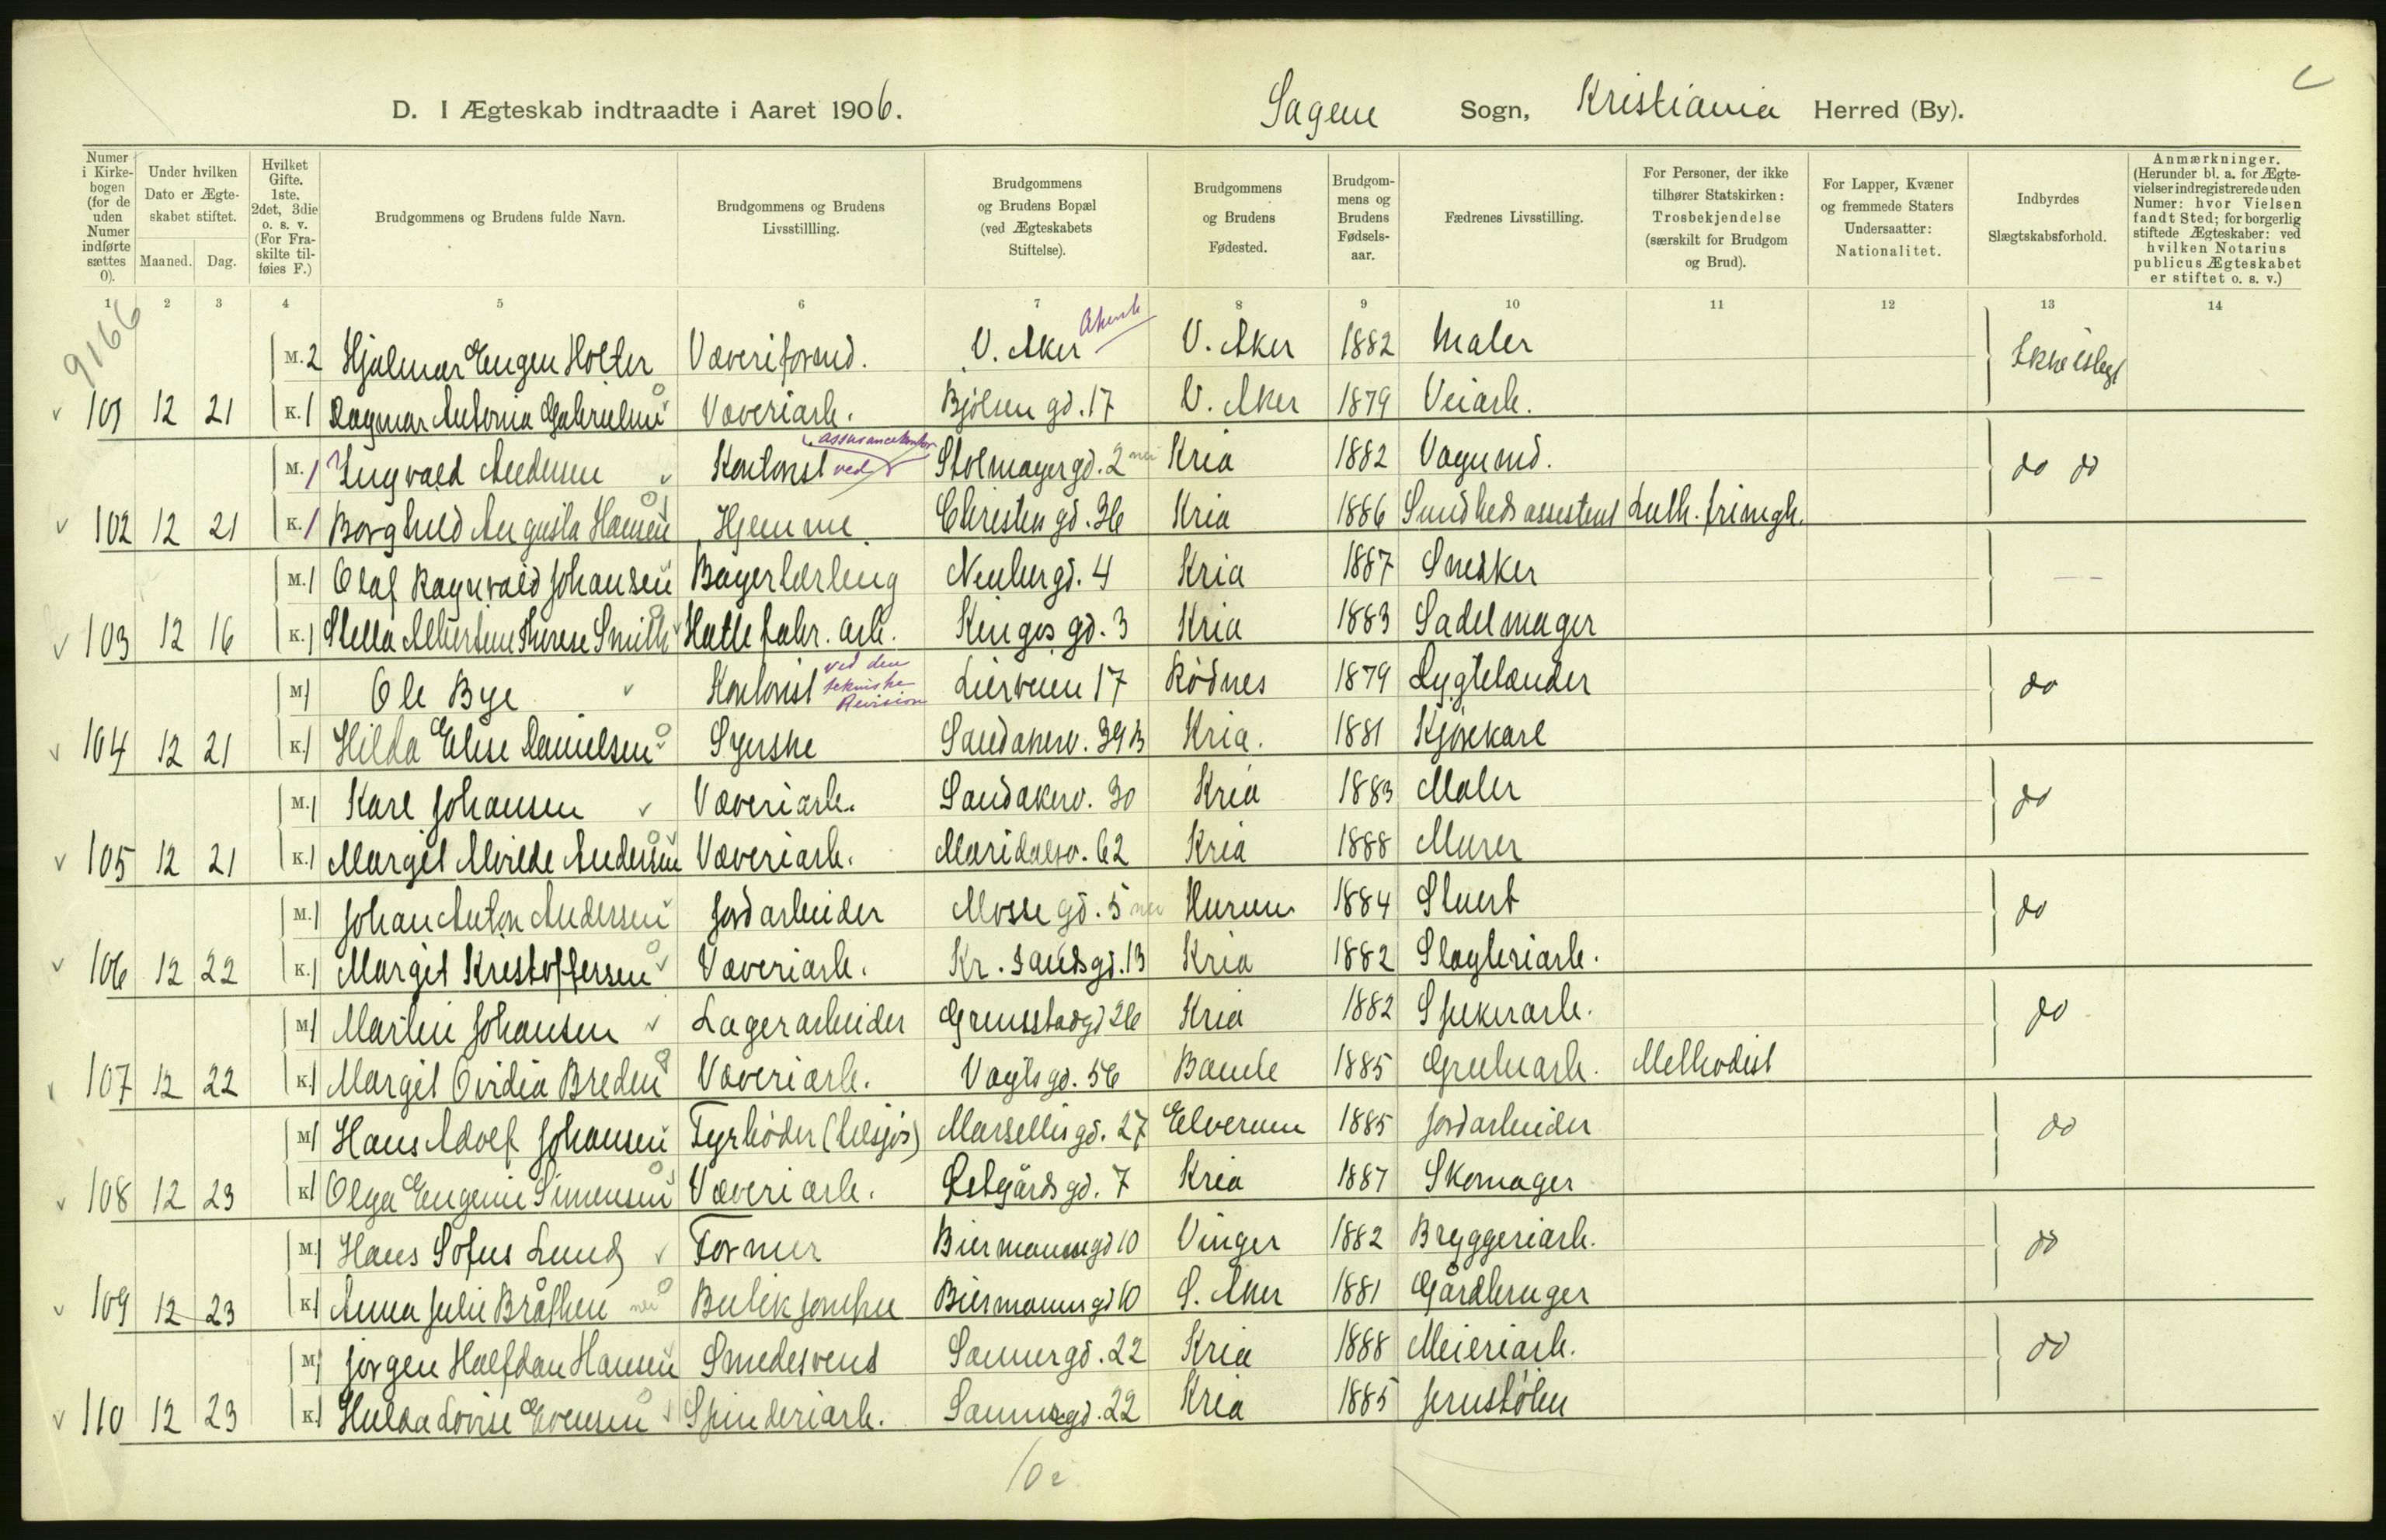 D. I Ægteskab indtraadte i Aaret 1906. Sagene Sogn, Kristiania Herred (By).
Numer i Kirkebogen (for de uden Numer indførte sættes 0).
Under hvilken Dato er Ægteskabet stiftet.
Maaned. Dag.
Hvilket Gifte. 1ste, 2det, 3die o. s. v. (For Fraskilte tilføies F.)
Brudgommens og Brudens fulde Navn.
Brudgommens og Brudens Livsstillling.
Brudgommens og Brudens Bopæl (ved Ægteskabets Stiftelse).
Brudgommens og Brudens Fødested.
Brudgommens og Brudens Fødselsaar.
Fædrenes Livsstilling.
For Personer, der ikke tilhører Statskirken: Trosbekjendelse (særskilt for Brudgom og Brud).
For Lapper, Kvæner og fremmede Staters Undersaatter: Nationalitet.
Indbyrdes Slægtskabsforhold.
Anmærkninger. (Herunder bl. a. for Ægtevielser indregistrerede uden Numer: hvor Vielsen fandt Sted; for borgerlig stiftede Ægteskaber: ved hvilken Notarius publicus Ægteskabet er stiftet o. s. v.)
1 2 3 4 5 6 7 8 9 10 11 12 13 14
9166
M. 2 Hjalmar Eugen Holter Væveriform d. V. Aker V. Aker 1882 Maler
101 12 21 K. 1 Dagmar Antonia Gabrielsen Væveriarb. Bjølsen gd. 17 V. Aker 1879 Veiarb.
M. 1 Ingvald Andersen Kontorist ved assurancekontor Stolmager gd. 2 Kria 1882 Vognmd. do do
102 12 21 K. 1 Borghild Augusta Hansen Hjemme Christies gd. 36 Kria 1886 Sundhedsassistent Luth. frimgh.
M. 1 Olaf Ragnvald Johansen Bagerlærling Neuberggd. 4 Kria 1887 Snedker
103 12 16 K. 1 Stella Albertine Therese Smith Hattefabr. arb. Kingos gd. 3 Kria 1883 Sadelmager
M 1 Ole Bye Kontorist ved den tekniske Revision Lierveien 17 Rødnes 1879 Lygtetænder do
104 12 21 K. 1 Hilda Elise Danielsen Syerske Sandakerv. 39B Kria. 1881 Kjørekarl
M. 1 Karl Johansen Væveriarb. Sandakerv. 30 Kria 1883 Maler do
105 12 21 K. 1 Margit Alvilde Andersen Væveriarb. Maridalsv. 62 Kria 1888 Murer
M. 1 Johan Anton Andersen Jordarbeider Mosse gd. 5 Hurum 1884 Stuert do
106 12 22 K. 1 Margit Kristoffersen Væveriarb. Kr. sands gd. 13 Kria 1882 Slagteriarb.
M 1 Martin Johansen Lagerarbeider Grimstadgd 26 Kria 1882 Spikerarb. do
107 12 22 K. 1 Margit Ovidia Breden Væveriarb. Vogts gd. 56 Bamle 1885 Grubearb. Methodist
M 1 Hans Adolf Johansen Fyrbøder (tilsjøs) Marselis gd. 27 Elverum 1885 Jordarbeider do
108 12 23 K 1 Olga Eugenie Simensen Væveriarb. Østgårds gd. 7 Kria 1887 Skomager
M. 1 Hans Sofus Lund Former Biermannsgd 10 Vinger 1882 Bryggeriarb. do
109 12 23 K 1 Anna Julie Bråthen Butikjomfru Biermannsgd 10 S. Aker 1881 Gårdbruger
M 1 Jørgen Halfdan Hansen Smedesvend Sannergd. 22 Kria 1888 Meieriarb. do
110 12 23 K. 1 Hulda Lovise Evensen Spinderiarb. Sannergd. 22 Kria 1885 Jernstøber